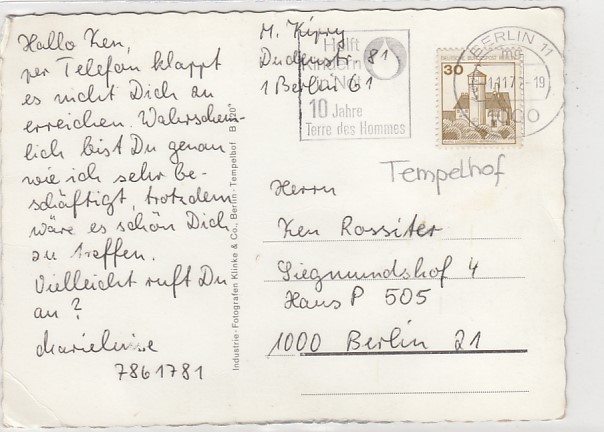 Hallo Ken,
per Telefon klappt
es nicht Dich zu
erreichen. Wahrschein-
lich bist Du genau
wie ich sehr be-
schäftigt, trotzdem
wäre es schön Dich
zu treffen.
Vielleicht rufst Du
an?
Marieluise
7861781
M. Kipry
Dudenstr. 81
1 Berlin 61
Helft
Kindern
in Not
10 Jahre
Terre des Hommes
BERLIN 11
- 19
30
Tempelhof
Industrie-Fotografen Klinke & Co., Berlin-Tempelhof
Herrn
Ken Rossiter
Siegmundshof 4
Haus P 505
1000 Berlin 21